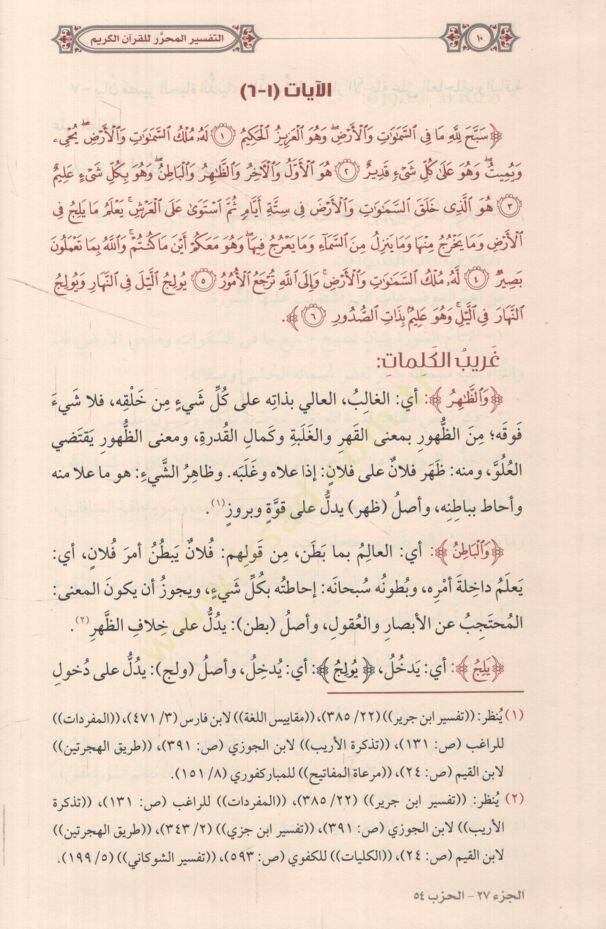 ١٠
التفسير المحرَّر للقرآن الكريم
الآيات (١-٦)
﴿ سَبَّحَ لِلَّهِ مَا فِي السَّمَوَاتِ وَالْأَرْضِ وَهُوَ الْعَزِيزُ الْحَكِيمُ ١ لَهُ مُلْكُ السَّمَوَاتِ وَالْأَرْضِ يُحْيِي
وَيُمِيتُ وَهُوَ عَلَى كُلِّ شَيْءٍ قَدِيرٌ ٢ هُوَ الْأَوَّلُ وَالْآخِرُ وَالظَّاهِرُ وَالْبَاطِنُ وَهُوَ بِكُلِّ شَيْءٍ عَلِيمٌ
٣ هُوَ الَّذِي خَلَقَ السَّمَوَاتِ وَالْأَرْضَ فِي سِتَّةِ أَيَّامٍ ثُمَّ اسْتَوَى عَلَى الْعَرْشِ يَعْلَمُ مَا يَلِجُ فِي
الْأَرْضِ وَمَا يَخْرُجُ مِنْهَا وَمَا يَنْزِلُ مِنَ السَّمَاءِ وَمَا يَعْرُجُ فِيهَا وَهُوَ مَعَكُمْ أَيْنَ مَا كُنْتُمْ وَاللَّهُ بِمَا تَعْمَلُونَ
بَصِيرٌ ٤ لَهُ مُلْكُ السَّمَوَاتِ وَالْأَرْضِ وَإِلَى اللَّهِ تُرْجَعُ الْأُمُورُ ٥ يُولِجُ اللَّيْلَ فِي النَّهَارِ وَيُولِجُ
النَّهَارَ فِي اللَّيْلِ وَهُوَ عَلِيمٌ بِذَاتِ الصُّدُورِ ٦ ﴾.
غريبُ الكلمات:
﴿ وَالظَّاهِرُ ﴾: أي: الغالبُ، العالي بذاتِه على كُلِّ شَيءٍ مِن خَلْقِه، فلا شَيءَ
فَوقَه؛ مِنَ الظُّهورِ بمعنى القَهرِ والغَلَبةِ وكَمالِ القُدرةِ، ومعنى الظُّهورِ يَقتَضي
العُلُوَّ، ومنه: ظَهَر فلانٌ على فلانٍ: إذا علاه وغَلَبَه. وظاهِرُ الشَّيءِ: هو ما علا منه
وأحاط بباطِنِه، وأصلُ (ظهر) يدلُّ على قوَّةٍ وبروزٍ(١).
﴿ وَالْبَاطِنُ ﴾: أي: العالِمُ بما بَطَن، مِن قَولِهم: فُلانٌ يَبطُنُ أمرَ فُلانٍ، أي:
يَعلَمُ داخِلةَ أمْرِه، وبُطونُه سُبحانَه: إحاطتُه بكُلِّ شَيءٍ، ويجوزُ أن يكونَ المعنى:
المُحتَجِبُ عن الأبصارِ والعُقولِ، وأصلُ (بطن): يدُلُّ على خلافِ الظَّهرِ(٢).
﴿ يَلِجُ ﴾: أي: يَدخُلُ، ﴿ يُولِجُ ﴾: أي: يُدخِلُ، وأصلُ (ولج): يدُلُّ على دُخولِ
(١) يُنظر: ((تفسير ابن جرير)) (٢٢/ ٣٨٥)، ((مقاييس اللغة)) لابن فارس (٣/ ٤٧١)، ((المفردات))
للراغب (ص: ١٣١)، ((تذكرة الأريب)) لابن الجوزي (ص: ٣٩١)، ((طريق الهجرتين))
لابن القيم (ص: ٢٤)، ((مرعاة المفاتيح)) للمباركفوري (٨/ ١٥١).
(٢) يُنظر: ((تفسير ابن جرير)) (٢٢/ ٣٨٥)، ((المفردات)) للراغب (ص: ١٣١)، ((تذكرة
الأريب)) لابن الجوزي (ص: ٣٩١)، ((تفسير ابن جزي)) (٢/ ٣٤٣)، ((طريق الهجرتين))
لابن القيم (ص: ٢٤)، ((الكليات)) للكفوي (ص: ٥٩٣)، ((تفسير الشوكاني)) (٥/ ١٩٩).
الجزء ٢٧ - الحزب ٥٤